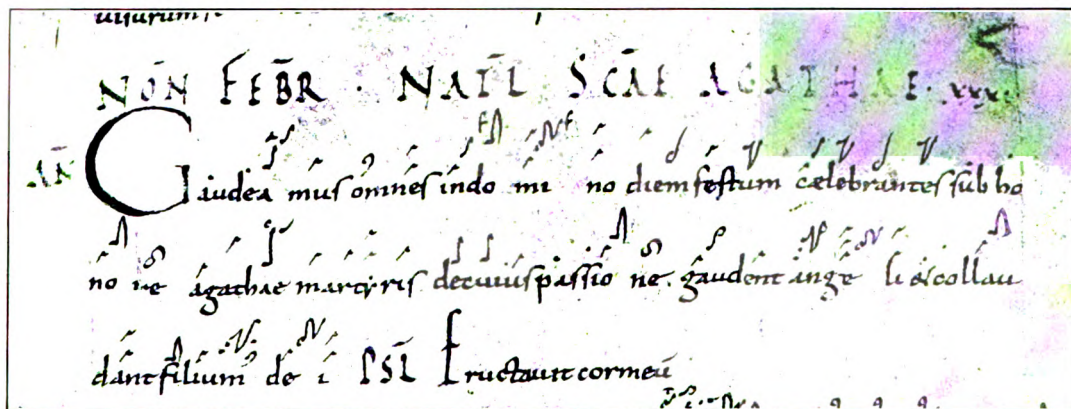 NON̄ FEBR̄ · NAT̄L SCAE AGATHAE · xxx
AN̄ Gaudea mus omnes indo mi no diem festum caelebrantes sub ho
no re agathae martyris decuius passio ne gaudent ange li et collau
dant filium de i PSL̄ Eructauit cor meū